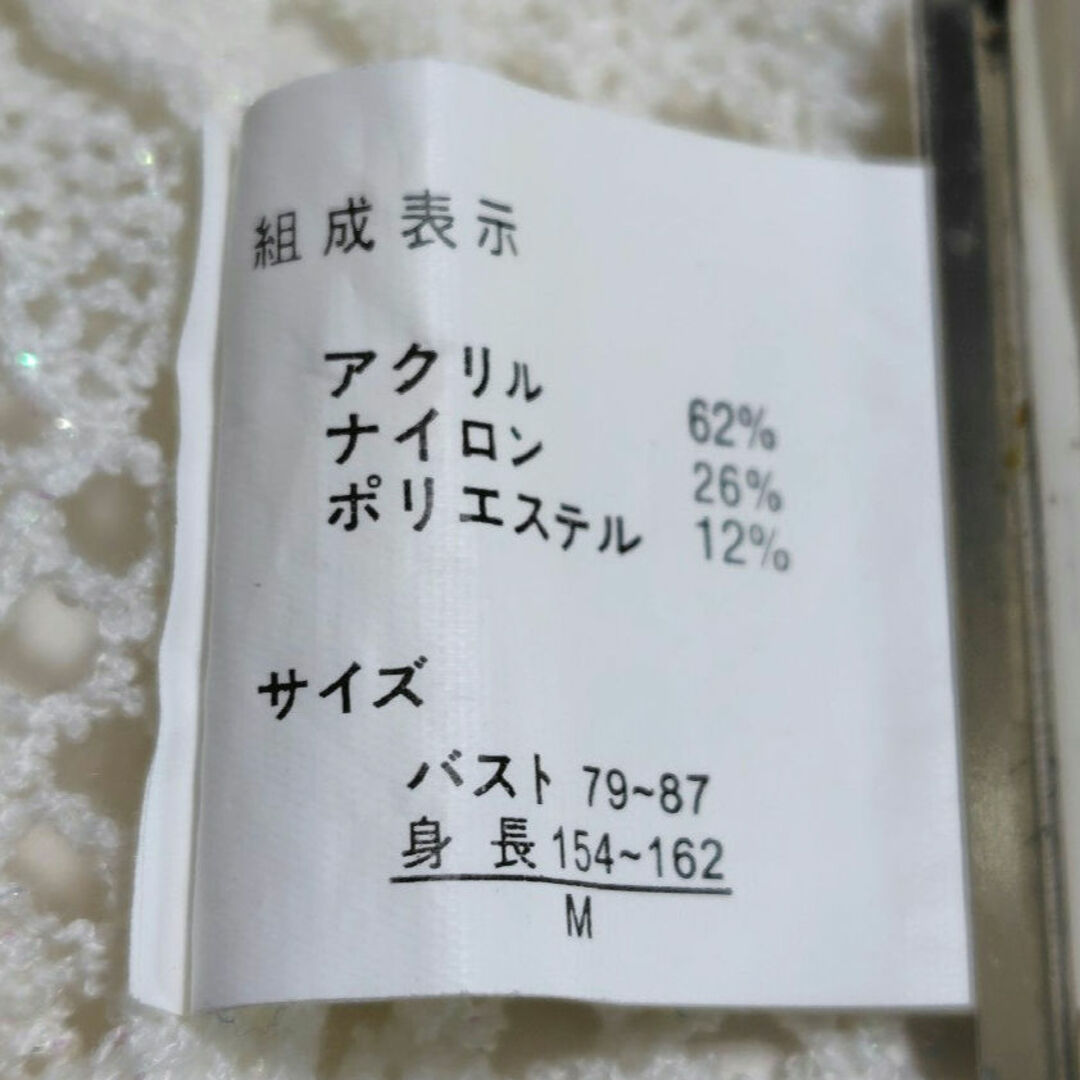 組成表示
アクリル 62%
ナイロン 26%
ポリエステル 12%
サイズ
バスト 79~87
身長 154~162
M